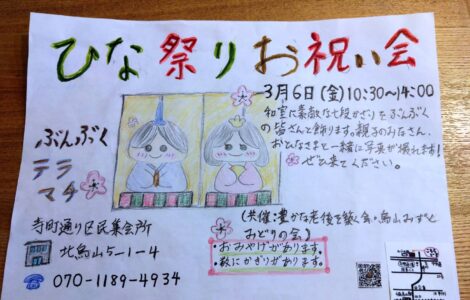 ひな祭りお祝い会
3月6日(金)10:30~14:00
和室に素敵な七段かざりをぶんぶく
の皆さんと飾ります。親子のみなさん、
おとなさまと一緒に写真が撮れます!
ぜひ来てください。
ぶんぶく
テラ
マチ
寺町通り区民集会所
北烏山5-1-4
070-1189-4934
(共催:豊かな老後を築く会・烏山みずと
みどりの会)
・おみやげがあります。
・数にかぎりがあります。